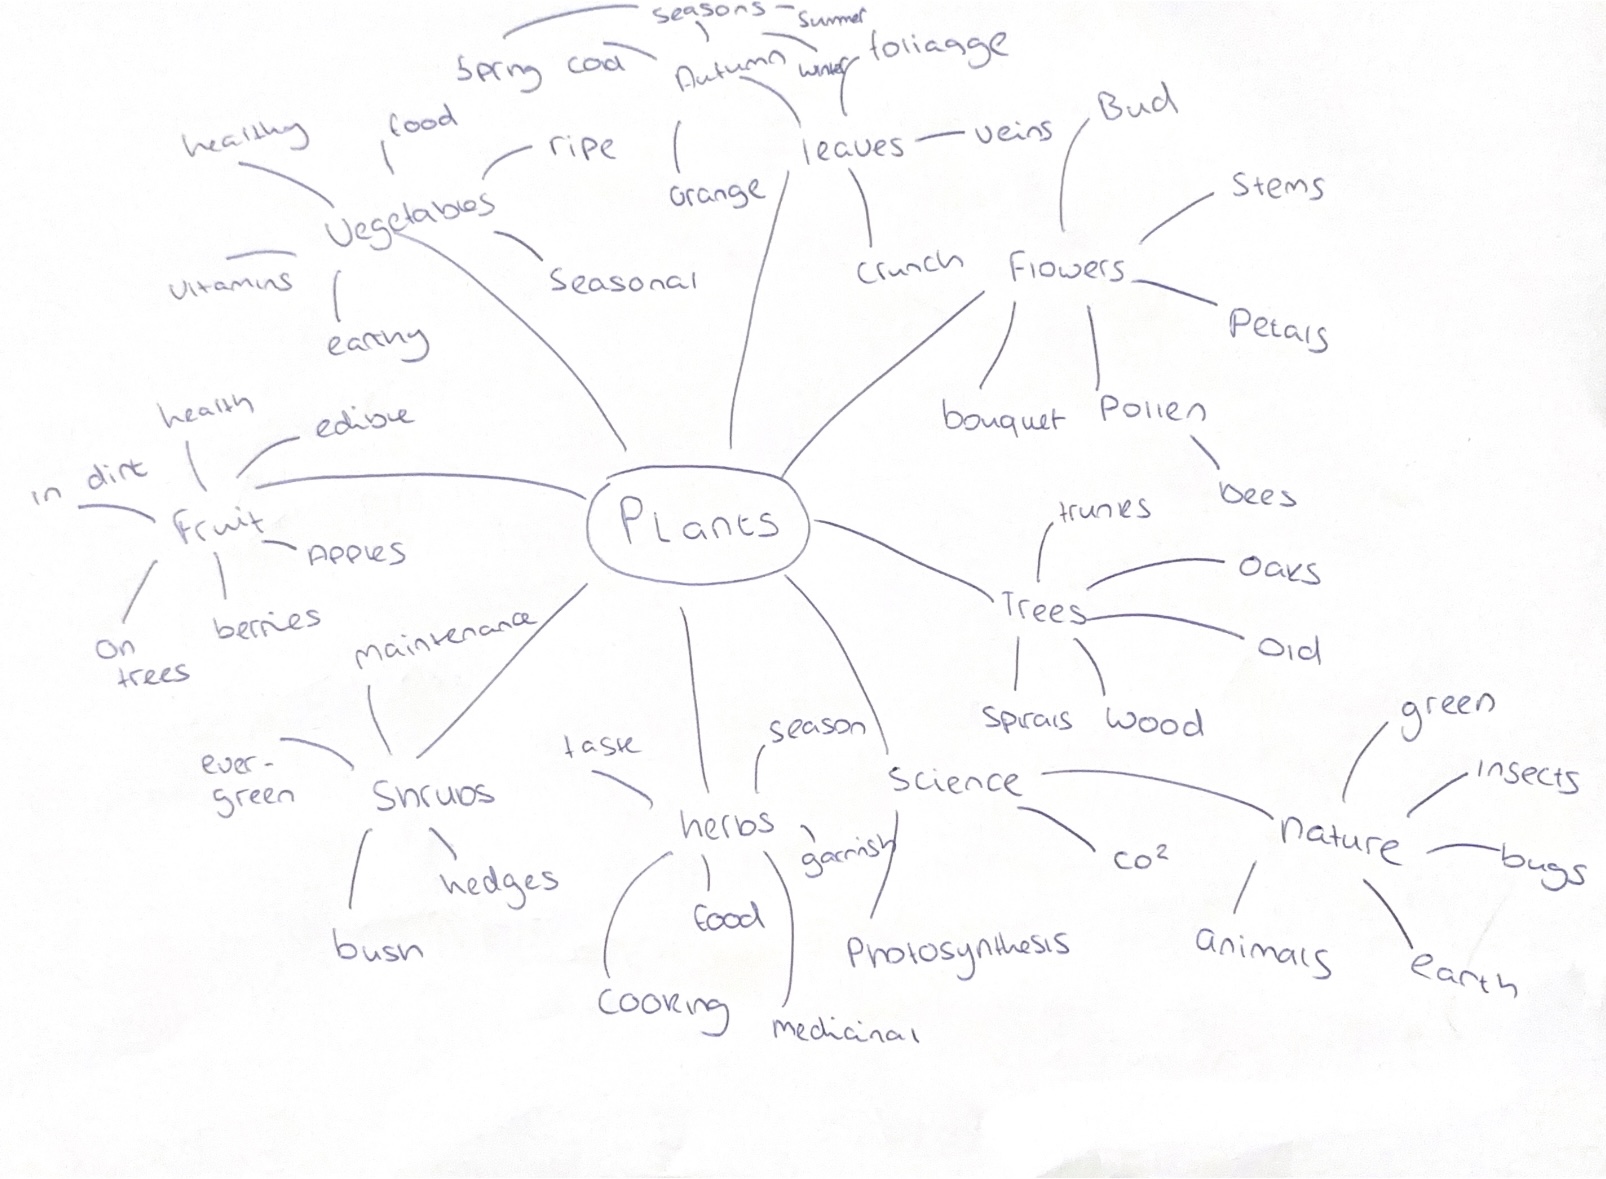 seasons
Summer
Spring
cold
Autumn
Winter
foliagge
healthy
food
ripe
orange
leaves
veins
Bud
Stems
Vegetables
Seasonal
vitamins
earthy
Crunch
Flowers
Petals
bouquet
Pollen
bees
health
edible
in dirt
Fruit
Apples
on
trees
berries
Plants
trunks
Oaks
Trees
Old
Spirals
Wood
maintenance
ever-
green
Shrubs
hedges
bush
taste
season
herbs
garnish
food
cooking
medicinal
Science
CO²
Photosynthesis
green
insects
nature
bugs
animals
earth